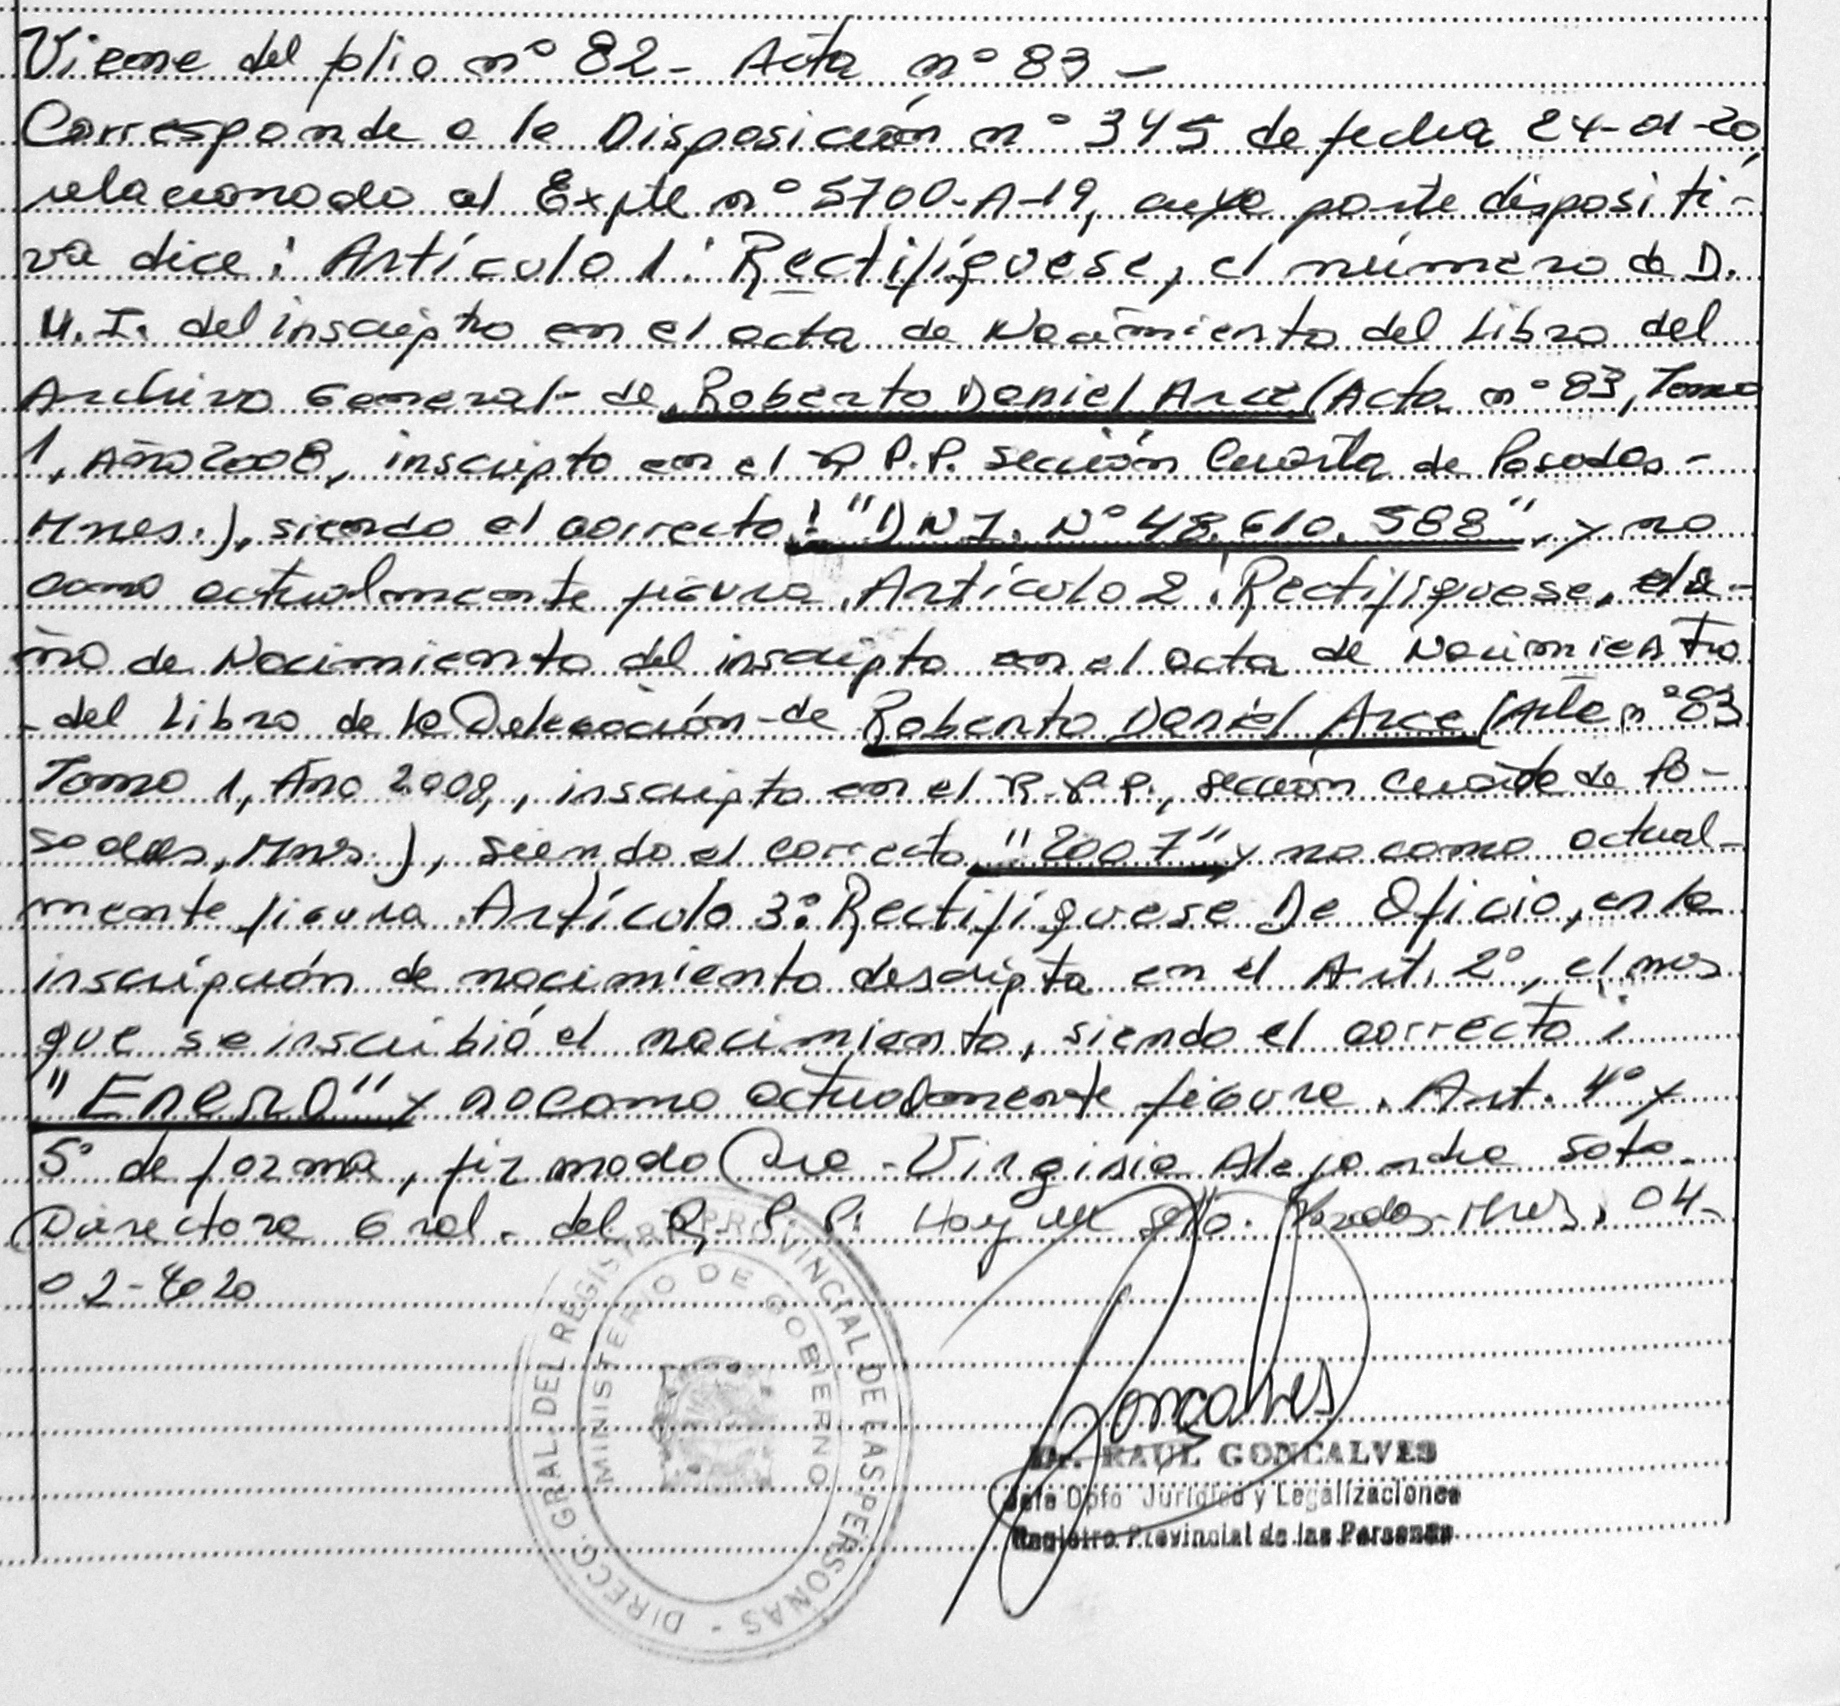 Viene del folio n° 82 - Acta n° 83 -
Corresponde a la Disposición n° 345 de fecha 24-01-20,
relacionado al Expte n° 5700-A-19, cuya parte dispositi-
va dice: Artículo 1: Rectifíquese, el número de D.
N.I. del inscripto en el acta de Nacimiento del Libro del
Archivo General - de Roberto Daniel Arce (Acta n° 83, Tomo
1, Año 2008, inscripto en el R.P.P. sección Cuarta de Posadas -
Mnes.), siendo el correcto: "DNI. N° 48.610.588", y no
como actualmente figura. Artículo 2: Rectifíquese, el a-
ño de Nacimiento del inscripto en el acta de Nacimiento
- del Libro de la Delegación - de Roberto Daniel Arce (Acta n° 83
Tomo 1, Año 2008, inscripto en el R.P.P., sección Cuarta de Po-
sadas, Mnes.), siendo el correcto "2007" y no como actual-
mente figura. Artículo 3°: Rectifíquese De Oficio, en la
inscripción de nacimiento descripta en el Art. 2°, el mes
que se inscribió el nacimiento, siendo el correcto:
"Enero" y no como actualmente figura. Art. 4° y
5° de forma, firmado Dra. Virginia Alejandra Soto.
Directora Gral. del R.P.P. Hay un sello. Posadas, Mnes, 04-
02-2020
DIRECC. GRAL. DEL REGISTRO PROVINCIAL DE LAS PERSONAS -
MINISTERIO DE GOBIERNO
Goncalves
Dr. RAUL GONCALVES
Jefe Dpto Jurídico y Legalizaciones
Registro Provincial de las Personas